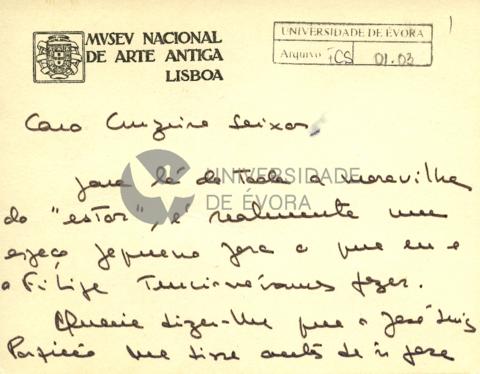 MVSEV NACIONAL
DE ARTE ANTIGA
LISBOA
UNIVERSIDADE DE ÉVORA
Arquivo FCS 01.03
1
Caro Cruzeiro Seixas,
Para lá de toda a maravilha
do "estor", é realmente um
espaço pequeno para o que eu e
o Filipe tencionávamos fazer.
Queria dizer-lhe que o José Luís
Porfírio me disse antes de ir para
UNIVERSIDADE
DE ÉVORA